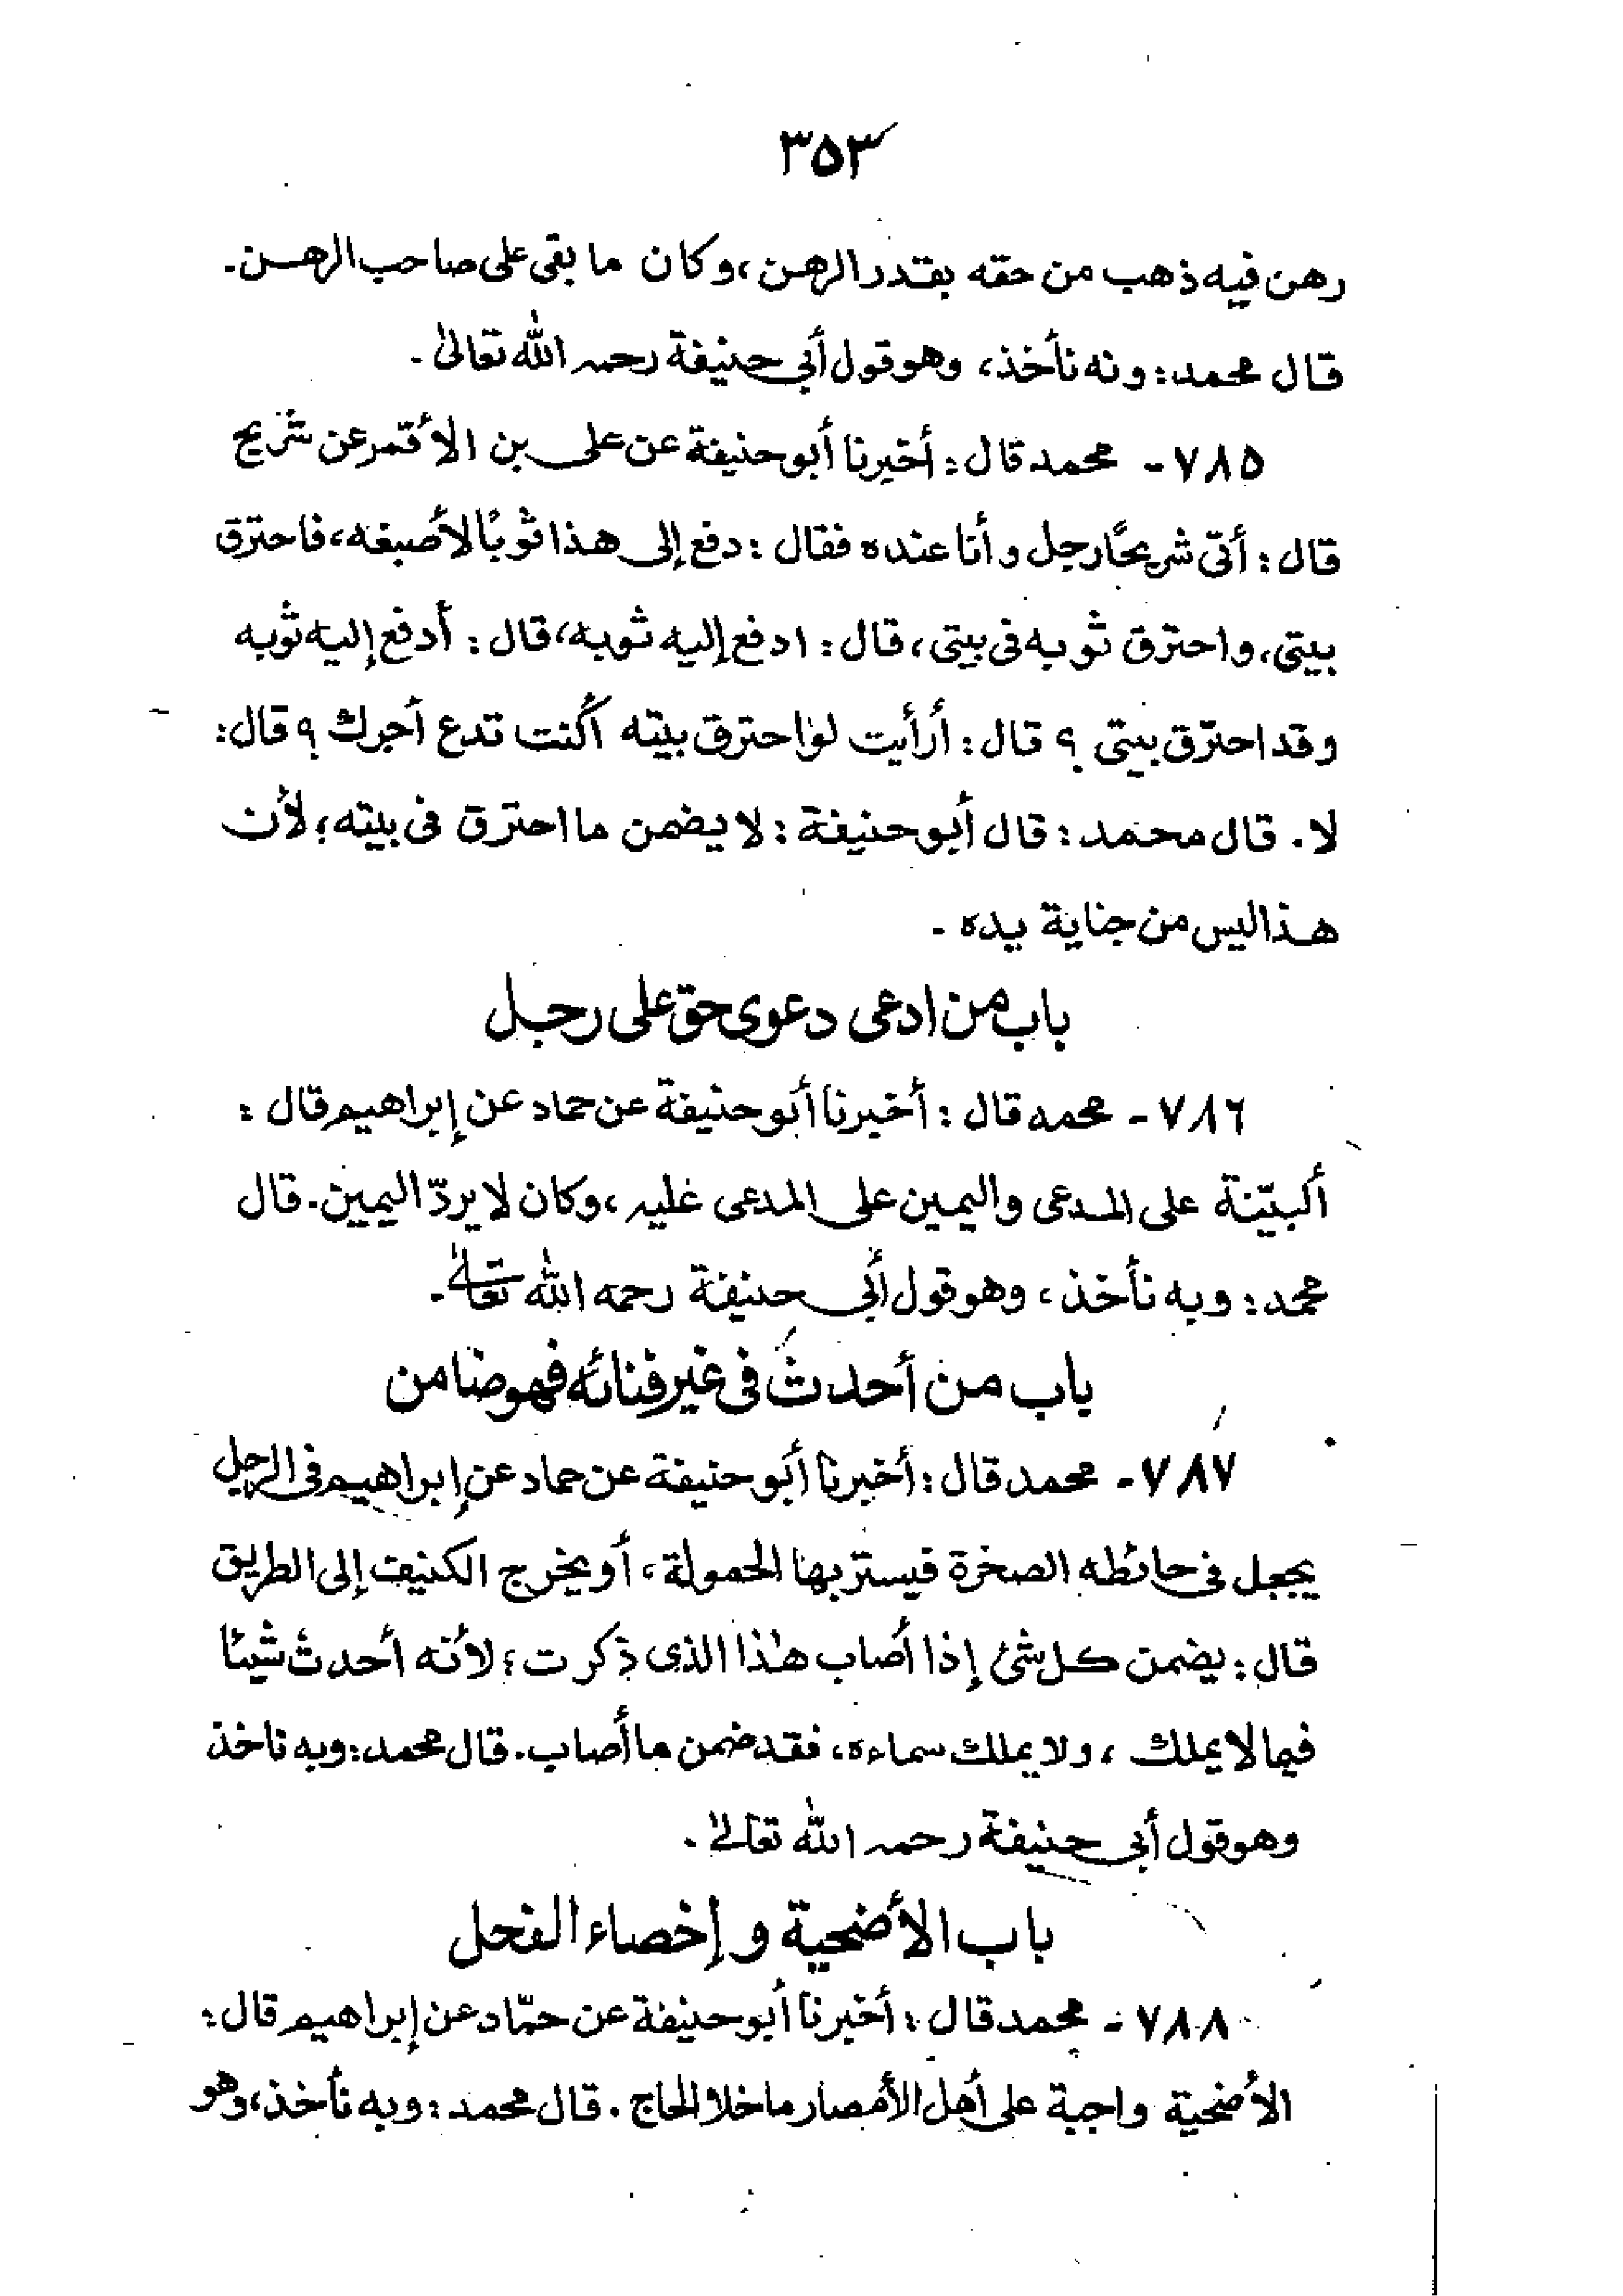 ٣٥٣
رهن فيه ذهب من حقه بقدر الرهن، وكان ما بقى على صاحب الرهن.
قال محمد: ونه نأخذ، وهو قول أبي حنيفة رحمه الله تعالىٰ.
٧٨٥ - محمد قال: أخبرنا أبو حنيفة عن على بن الأقمر عن شريح
قال: أتى شريحًا رجل وأنا عنده فقال: دفع إلى هذا ثوبًا لأصبغه، فاحترق
بيتى، واحترق ثوبه فى بيتى، قال: ادفع إليه ثوبه، قال: أدفع إليه ثوبه
وقد احترق بيتى؟ قال: أرأيت لو احترق بيته أكنت تدع أجرك؟ قال:
لا. قال محمد: قال أبو حنيفة: لا يضمن ما احترق فى بيته؛ لأن
هذا ليس من جناية يده.
باب من ادعى دعوى حق على رجل
٧٨٦ - محمد قال: أخبرنا أبو حنيفة عن حماد عن إبراهيم قال:
ألبيّنة على المدعى واليمين على المدعى عليه، وكان لا يردّ اليمين. قال
محمد: وبه نأخذ، وهو قول أبى حنيفة رحمه الله تعالىٰ.
باب من أحدث فى غير فنائه فهو ضامن
٧٨٧ - محمد قال: أخبرنا أبو حنيفة عن حماد عن إبراهيم فى الرجل
يجعل فى حائطه الصخرة فيستر بها الحمولة، أو يخرج الكنيف إلى الطريق
قال: يضمن كل شئ إذا أصاب هٰذا الذى ذكرت؛ لأنه أحدث شيئا
فيما لا يملك، ولا يملك سماءه، فقد ضمن ما أصاب. قال محمد: وبه ناخذ
وهو قول أبى حنيفة رحمه الله تعالىٰ.
باب الأضحية وإخصاء الفحل
٧٨٨ - محمد قال: أخبرنا أبو حنيفة عن حمّاد عن إبراهيم قال:
الأضحية واجبة على أهل الأمصار ما خلا الحاج. قال محمد: وبه نأخذ، وهو